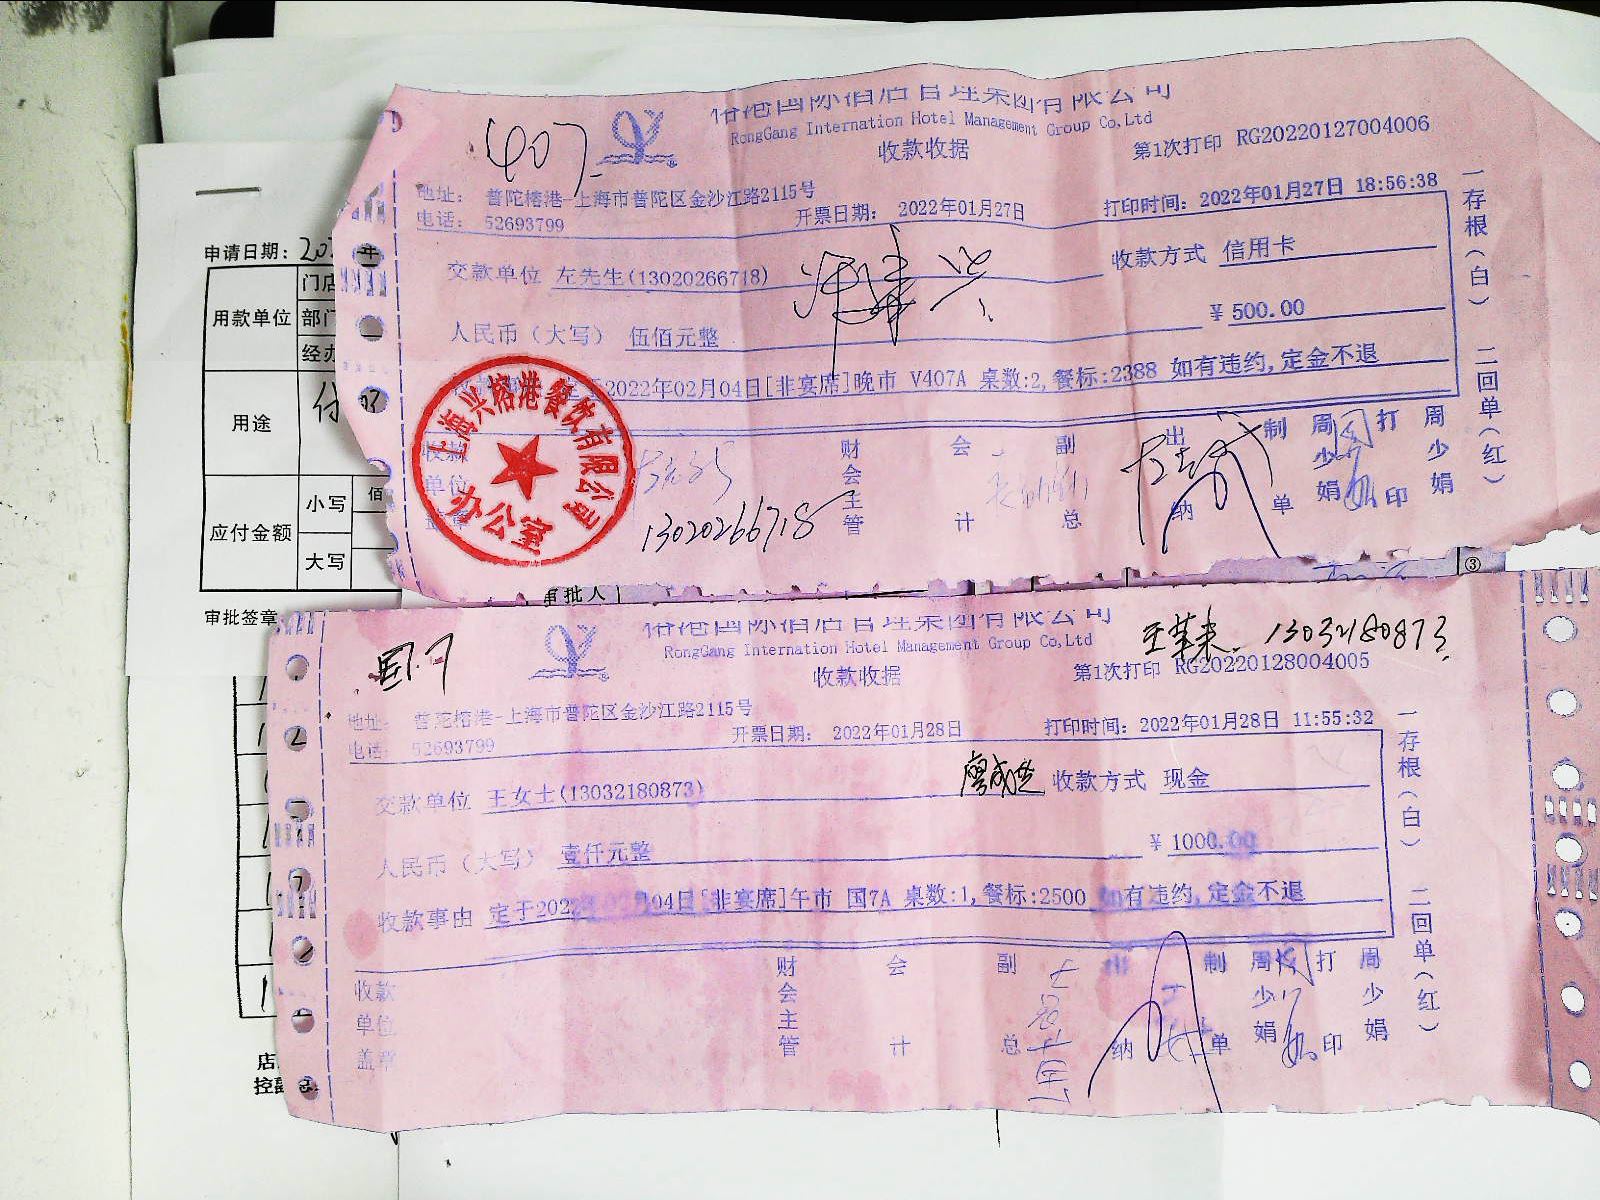 407
榕港国际酒店管理集团有限公司
RongGang Internation Hotel Management Group Co,Ltd
收款收据
第1次打印 RG20220127004006
地址: 普陀榕港-上海市普陀区金沙江路2115号
电话: 52693799
开票日期: 2022年01月27日
打印时间: 2022年01月27日 18:56:38
交款单位 左先生(13020266718)
收款方式 信用卡
人民币(大写) 伍佰元整
¥500.00
定于2022年02月04日[非宴席]晚市 V407A 桌数:2,餐标:2388 如有违约,定金不退
收款单位盖章
上海兴榕港餐饮有限公司
办公室
13020266718
财会主管
会计
副总
出纳
制单
周少娟
打印
周少娟
一存根(白) 二回单(红)
申请日期:
用款单位
门店
部门
经办
用途
付
应付金额
小写
佰
大写
审批签章
审批人
③
国7
榕港国际酒店管理集团有限公司
RongGang Internation Hotel Management Group Co,Ltd
收款收据
13032180873
第1次打印 RG20220128004005
地址: 普陀榕港-上海市普陀区金沙江路2115号
电话: 52693799
开票日期: 2022年01月28日
打印时间: 2022年01月28日 11:55:32
交款单位 王女士(13032180873)
收款方式 现金
人民币(大写) 壹仟元整
¥1000.00
收款事由 定于2022年02月04日[非宴席]午市 国7A 桌数:1,餐标:2500 如有违约,定金不退
收款单位盖章
财会主管
会计
副总
出纳
制单
周少娟
打印
周少娟
一存根(白) 二回单(红)